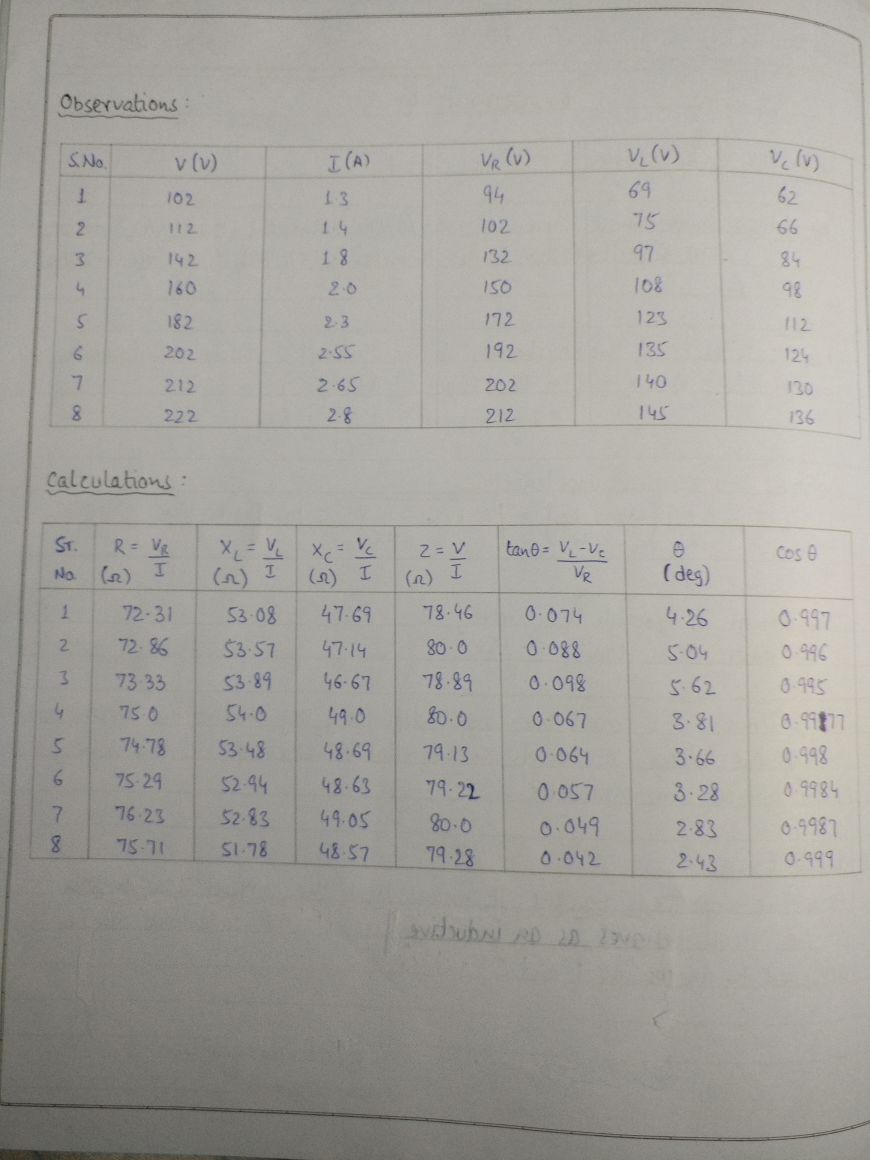 Observations:
S.No. V(V) I(A) VR(V) VL(V) VC(V)
1 102 1.3 94 69 62
2 112 1.4 102 75 66
3 142 1.8 132 97 84
4 160 2.0 150 108 98
5 182 2.3 172 123 112
6 202 2.55 192 135 124
7 212 2.65 202 140 130
8 222 2.8 212 145 136
Calculations:
Sr. No. R = VR/I (Ω) XL = VL/I (Ω) XC = VC/I (Ω) Z = V/I (Ω) tanθ = VL-VC/VR θ (deg) cos θ
1 72.31 53.08 47.69 78.46 0.074 4.26 0.997
2 72.86 53.57 47.14 80.0 0.088 5.04 0.996
3 73.33 53.89 46.67 78.89 0.098 5.62 0.995
4 75.0 54.0 49.0 80.0 0.067 3.81 0.9977
5 74.78 53.48 48.69 79.13 0.064 3.66 0.998
6 75.29 52.94 48.63 79.22 0.057 3.28 0.9984
7 76.23 52.83 49.05 80.0 0.049 2.83 0.9987
8 75.71 51.78 48.57 79.28 0.042 2.43 0.999